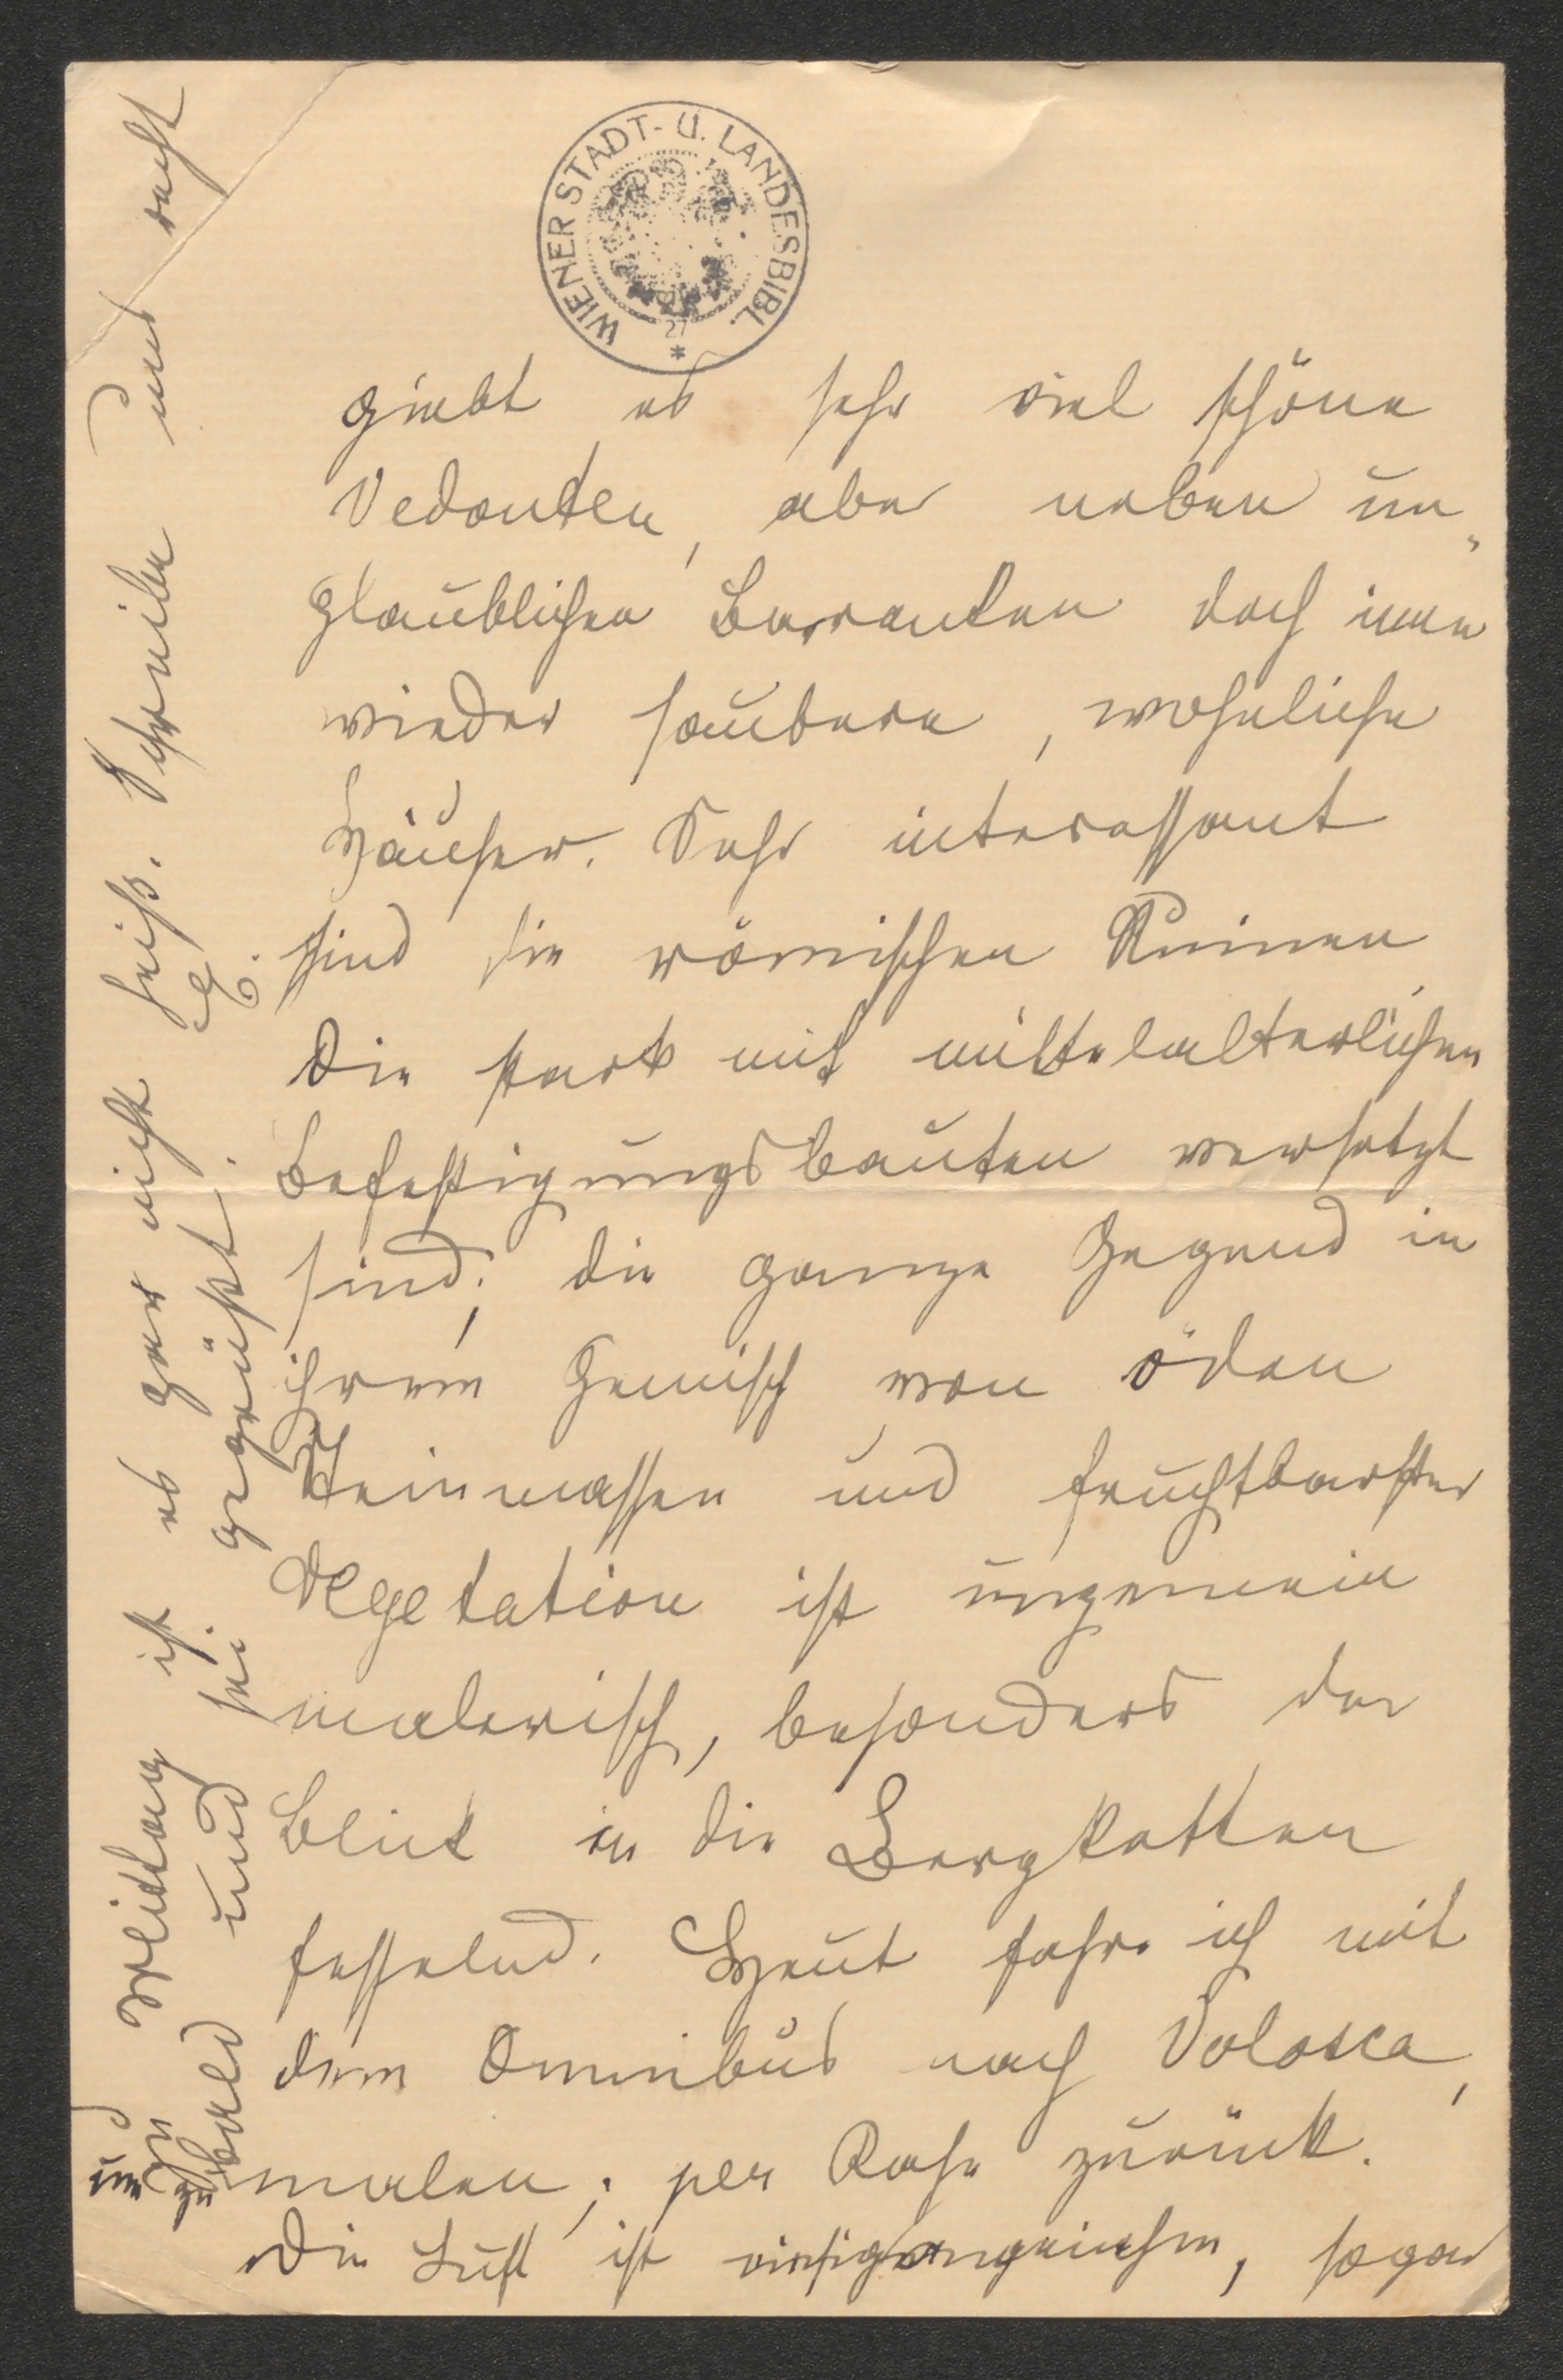 WIENER STADT- U. LANDESBIBL.
27
*
giebt es sehr viel schöne
Vedouten, aber neben un„
glaublichen Barranken doch immer
wieder saubere, wohnliche
Häuser. Sehr interessant
sind die römischen Ruinen
die stark mit mittelalterlichen
Befestigungsbauten versetzt
sind; die ganze Gegend in
ihrem Gemisch von öden
Steinmassen und fruchtbarster
Vegetation ist ungemein
malerisch, besonders der
Blick in die Bergketten
fesselnd. Heut fahre ich mit
dem Omnibus nach Volosca,
um zu malen; per Rahe zurück.
Die Luft ist angenehm, sogar
Mittag ist es gar nicht heiß. Schreibe uns recht
bald und sei gegrüßt.